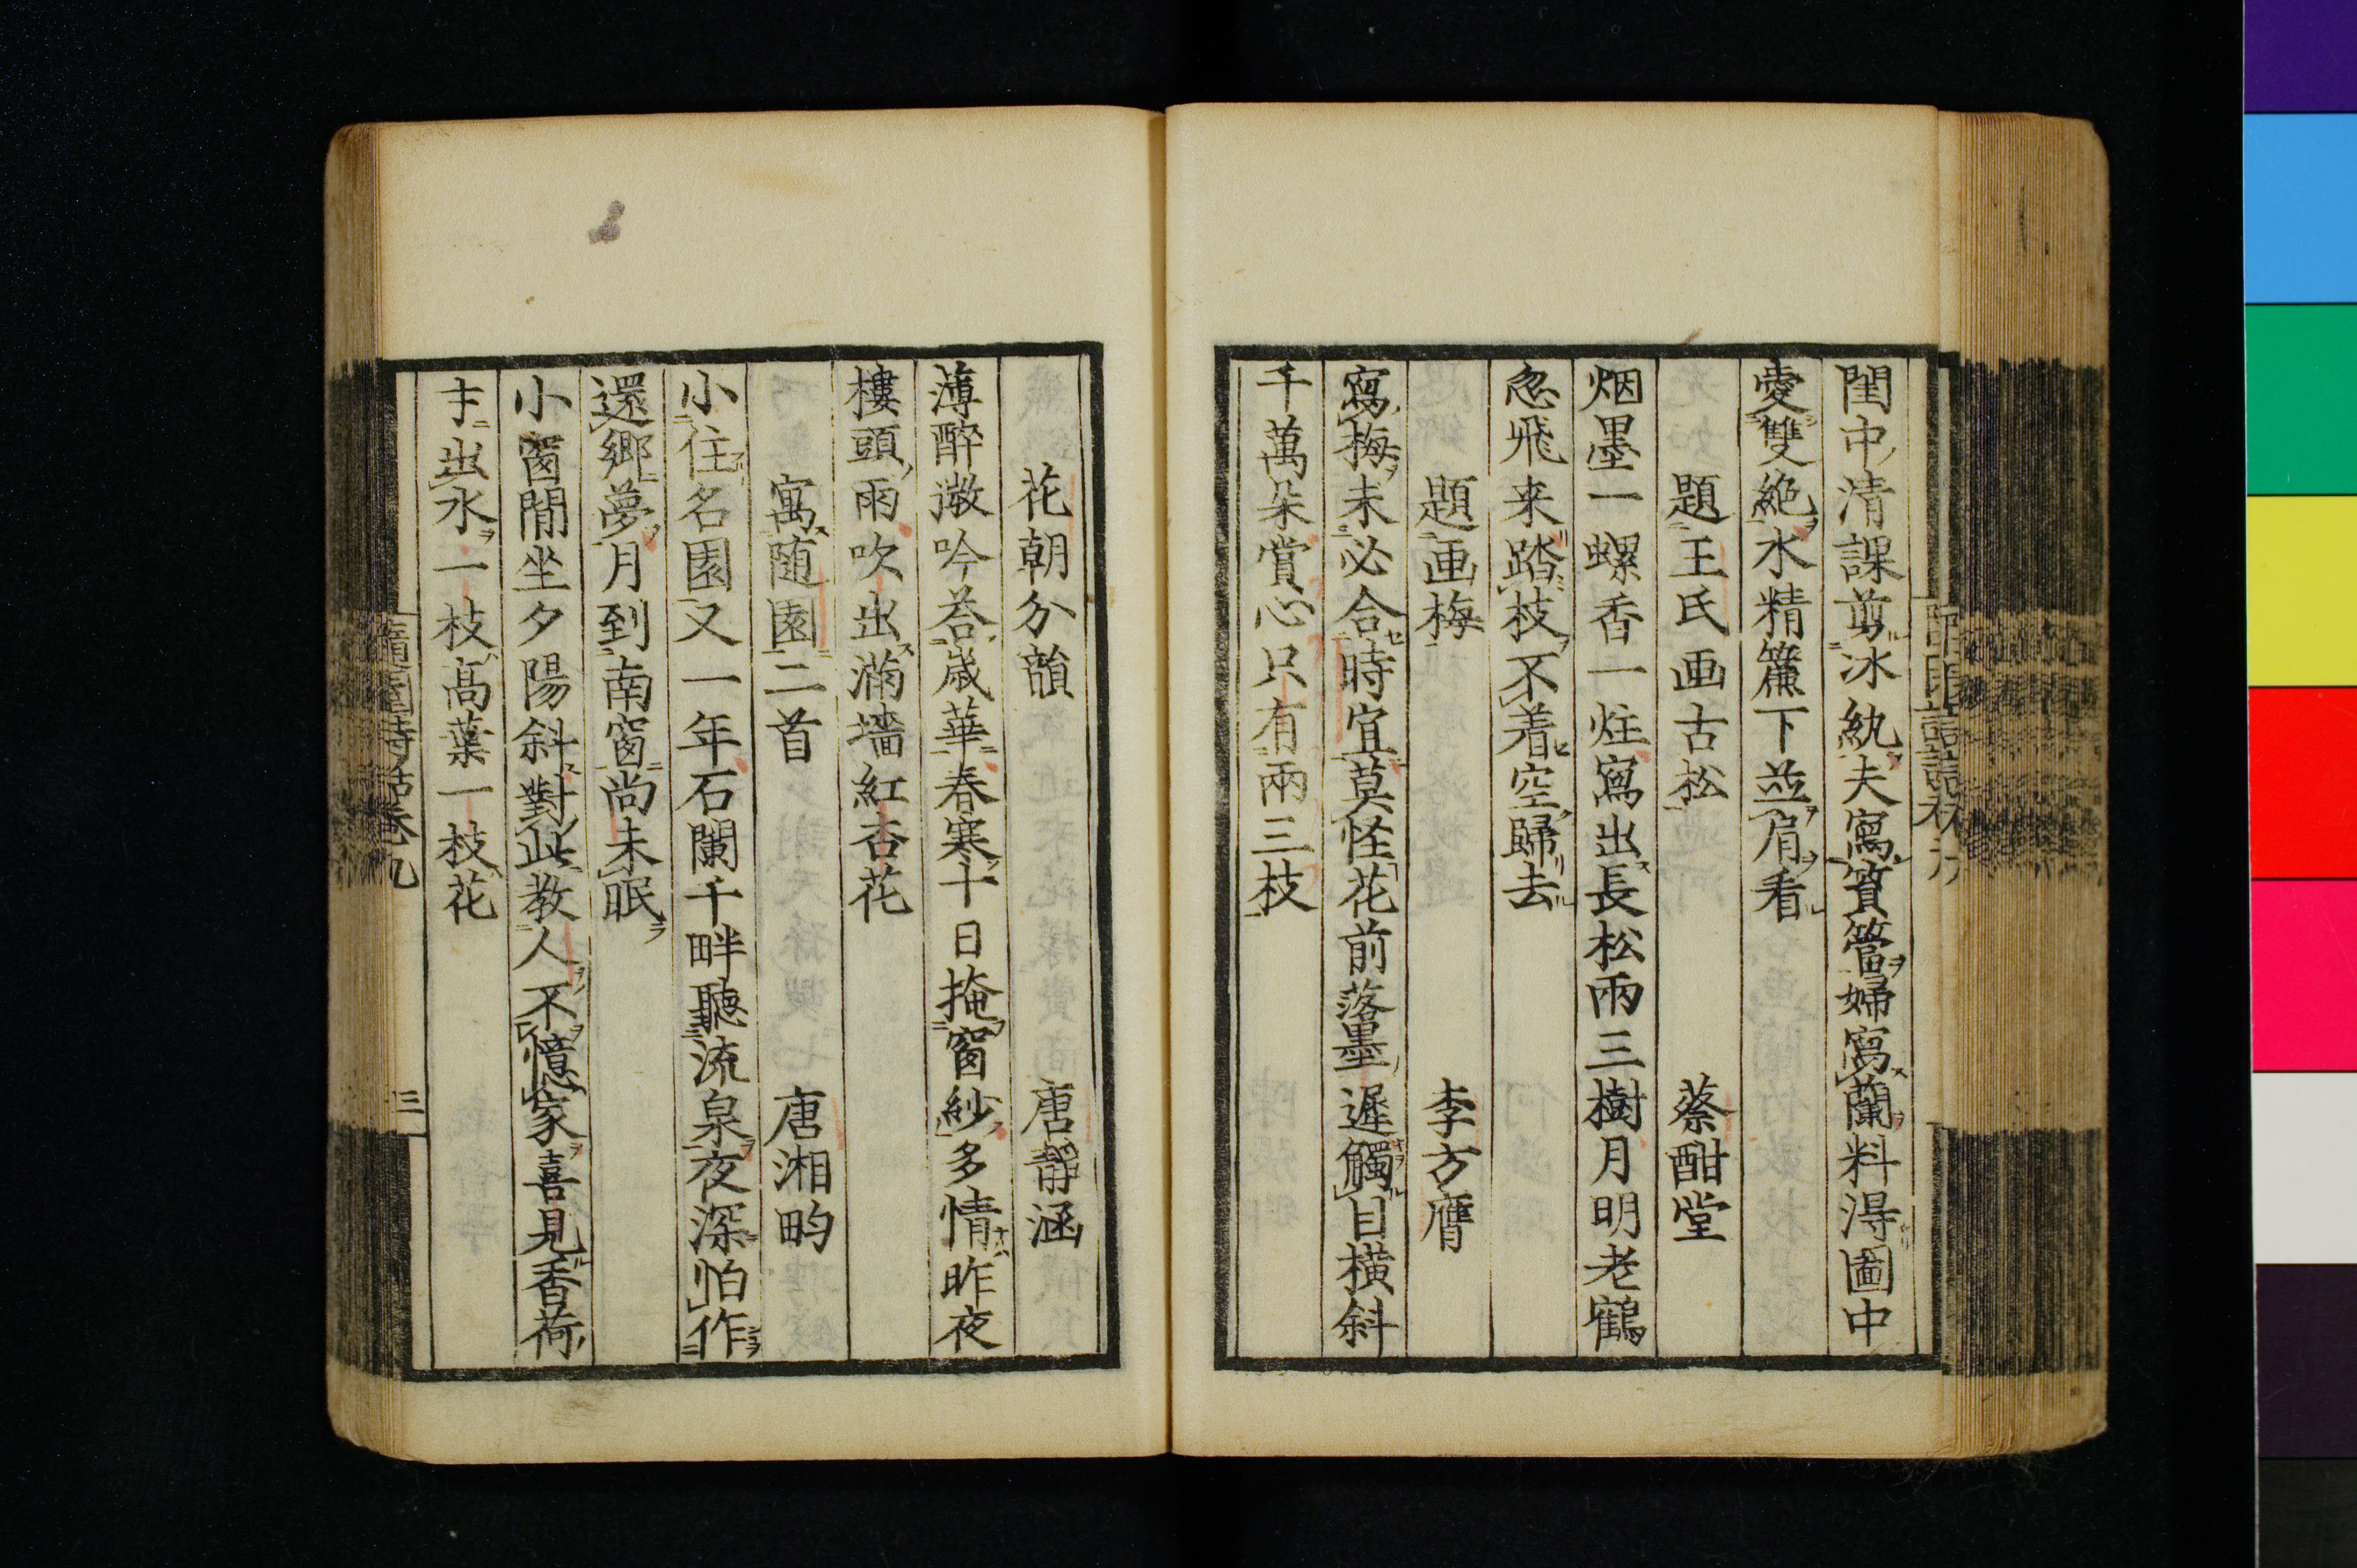 閨中清課剪冰紈夫寫篔簹婦寫蘭料得圖中
愛雙絶水精簾下並肩看
題王氏画古松　蔡酣堂
烟墨一螺香一炷寫出長松兩三樹月明老鶴
忽飛来踏枝不着空歸去
題画梅　李方膺
寫梅未必合時宜莫怪花前落墨遲觸目橫斜
千萬朶賞心只有兩三枝
花朝分韻　唐靜涵
薄醉微吟荅歳華春寒十日掩窗紗多情昨夜
樓頭雨吹出滿墻紅杏花
寓随園二首　唐湘畇
小住名園又一年石闌干畔聽流泉夜深怕作
還郷夢月到南窗尚未眠
小窗閒坐夕陽斜對此教人不憶家喜見香荷
才出水一枝高葉一枝花
隨園詩話卷九
三